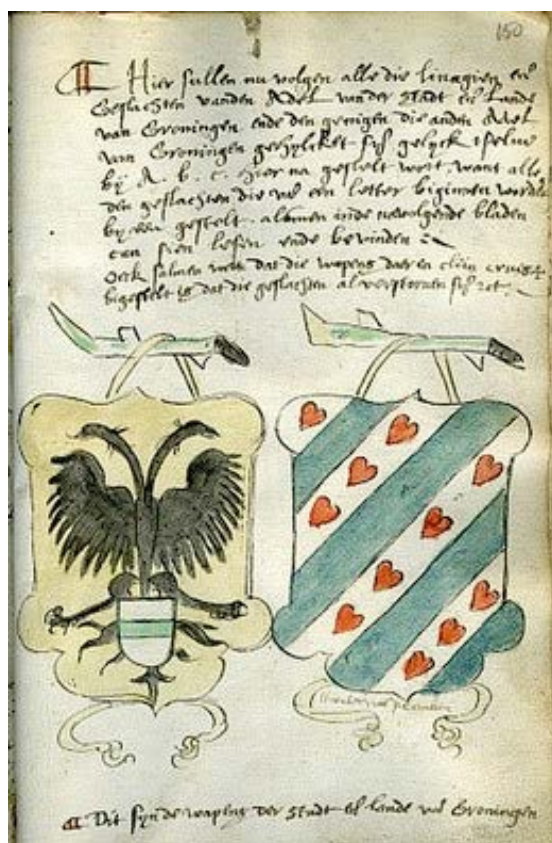 150
Hier sullen nu volgen alle die linagien en̄
Geslachten vanden Adel vander Stadt en̄ Lande
van Groningen ende den genigen die anden Adel
van Groningen gehylicket sijn gelyck tselue
bij A. b. c. hier na gestelt wort, want alle
den geslachten die mit een letter beginnen worden
by een gestelt. alsmen inde navolgende bladen
can sien lesen ende bevinden
Oeck salmen weten dat die wapens daer en clein
bigestelt is dat die geslachten al verstoruen sijn
Dit sijn de wapens der Stadt en̄ lande van Groningen